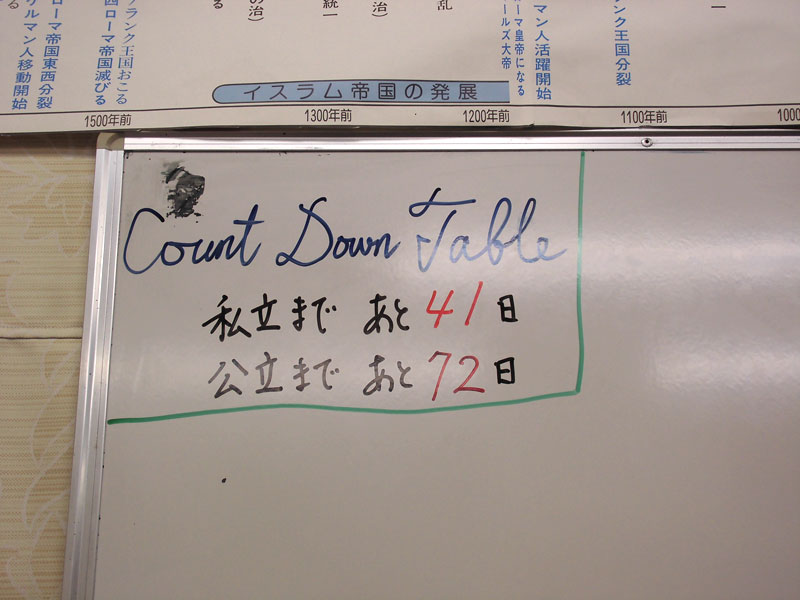 フランク王国おこる
西ローマ帝国滅びる
ローマ帝国東西分裂
ルマン人移動開始
る
の治)
統一
治)
乱
ーマ皇帝になる
ールズ大帝
マン人活躍開始
ランク王国分裂
イスラム帝国の発展
1500年前
1300年前
1200年前
1100年前
1000
Count Down Table
私立まで あと 41日
公立まで あと 72日